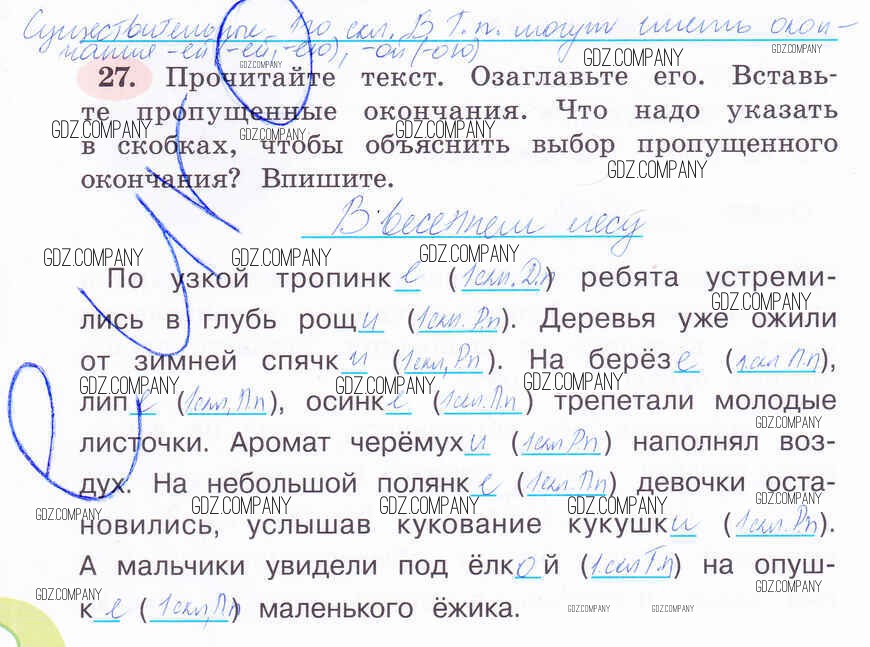 Существительные 1го скл. В Т.п. могут иметь окон-
чания -ей (-ею), -ой (-ою)
27. Прочитайте текст. Озаглавьте его. Вставь-
те пропущенные окончания. Что надо указать
в скобках, чтобы объяснить выбор пропущенного
окончания? Впишите.
В весеннем лесу
По узкой тропинке (1скл. Дп) ребята устреми-
лись в глубь рощи (1скл. Рп). Деревья уже ожили
от зимней спячки (1скл, Рп). На берёзе (1скл П.п),
липе (1скл, Пп), осинке (1скл. Пп) трепетали молодые
листочки. Аромат черёмухи (1скл Рп) наполнял воз-
дух. На небольшой полянке (1скл. Пп) девочки оста-
новились, услышав кукование кукушки (1скл. Рп).
А мальчики увидели под ёлкой (1скл Т.п) на опуш-
ке (1скл, Пп) маленького ёжика.
GDZ.COMPANY